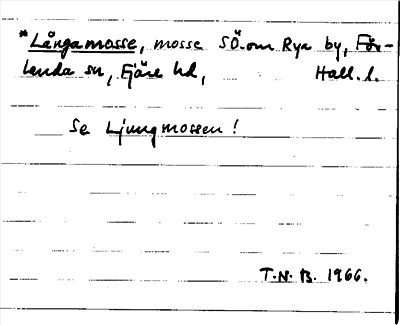 *Långamosse, mosse SÖ.om Rya by, För-
lenda sn, Fjäre hd, Hall. l.
Se Ljungmossen!
T.N.B. 1966.